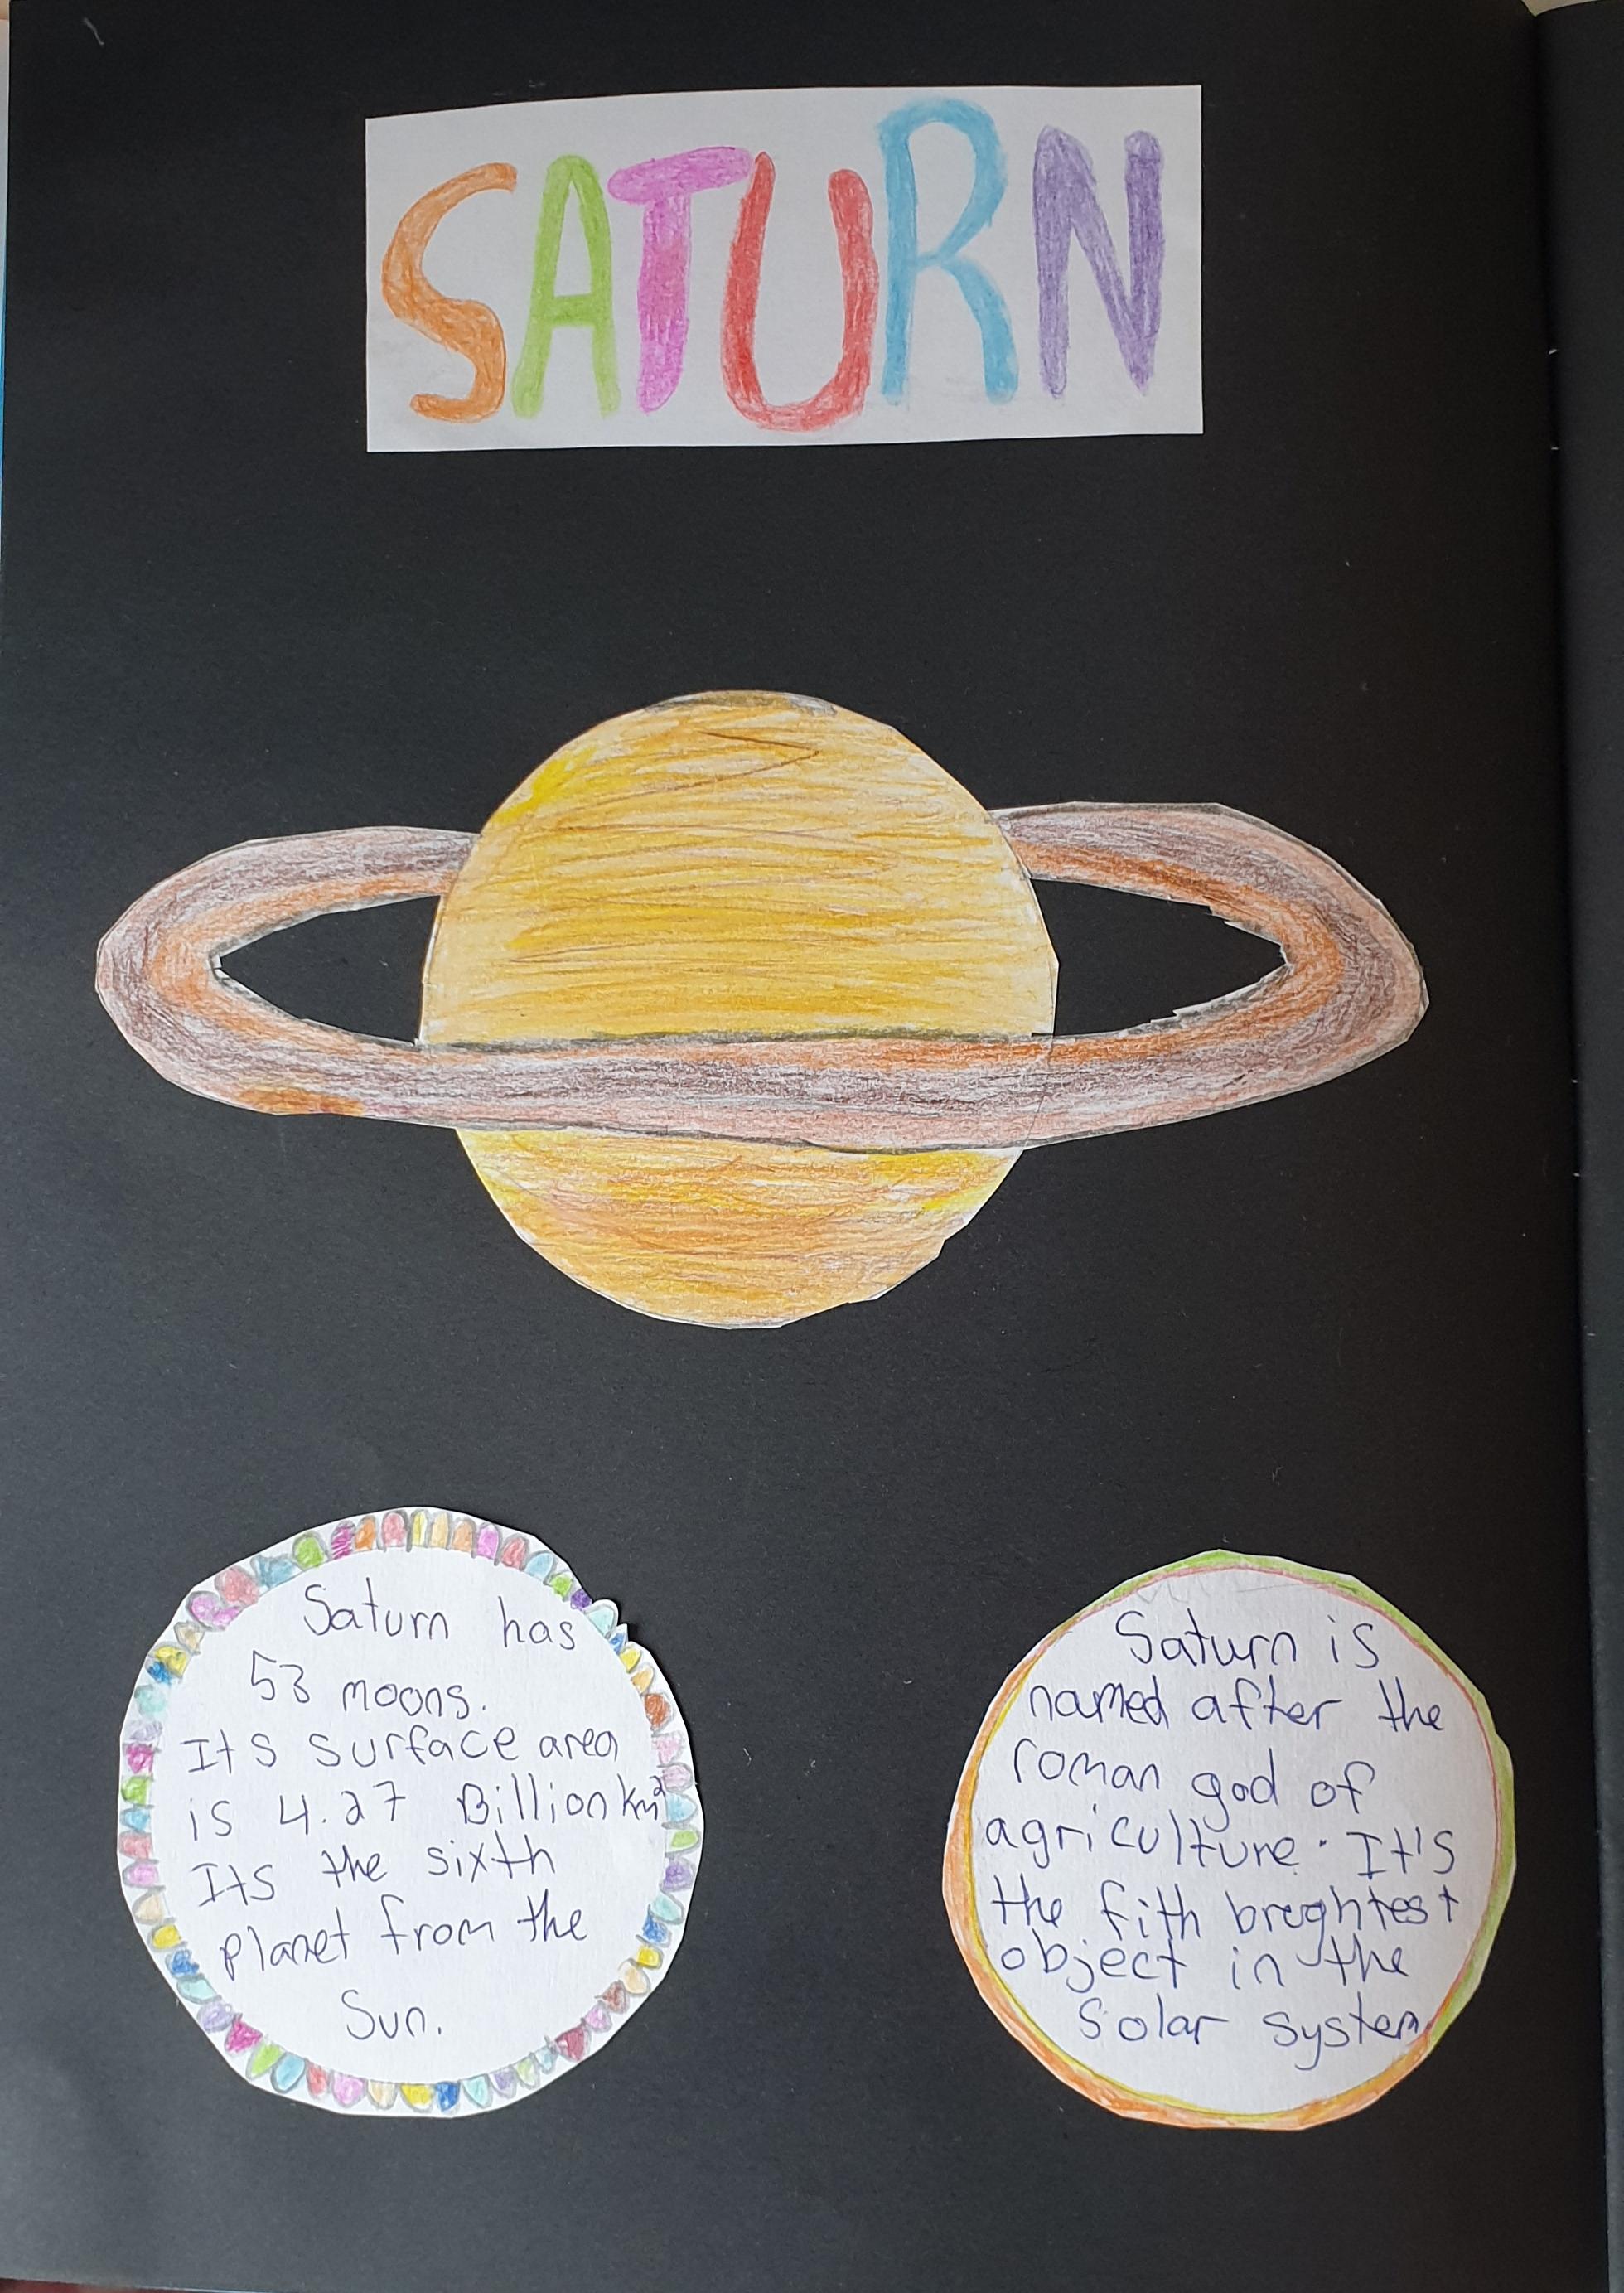 SATURN
Saturn has
53 moons.
Its surface area
is 4.27 Billion km²
Its the sixth
planet from the
Sun.
Saturn is
named after the
roman god of
agriculture. It's
the fith breghtest
object in the
Solar system